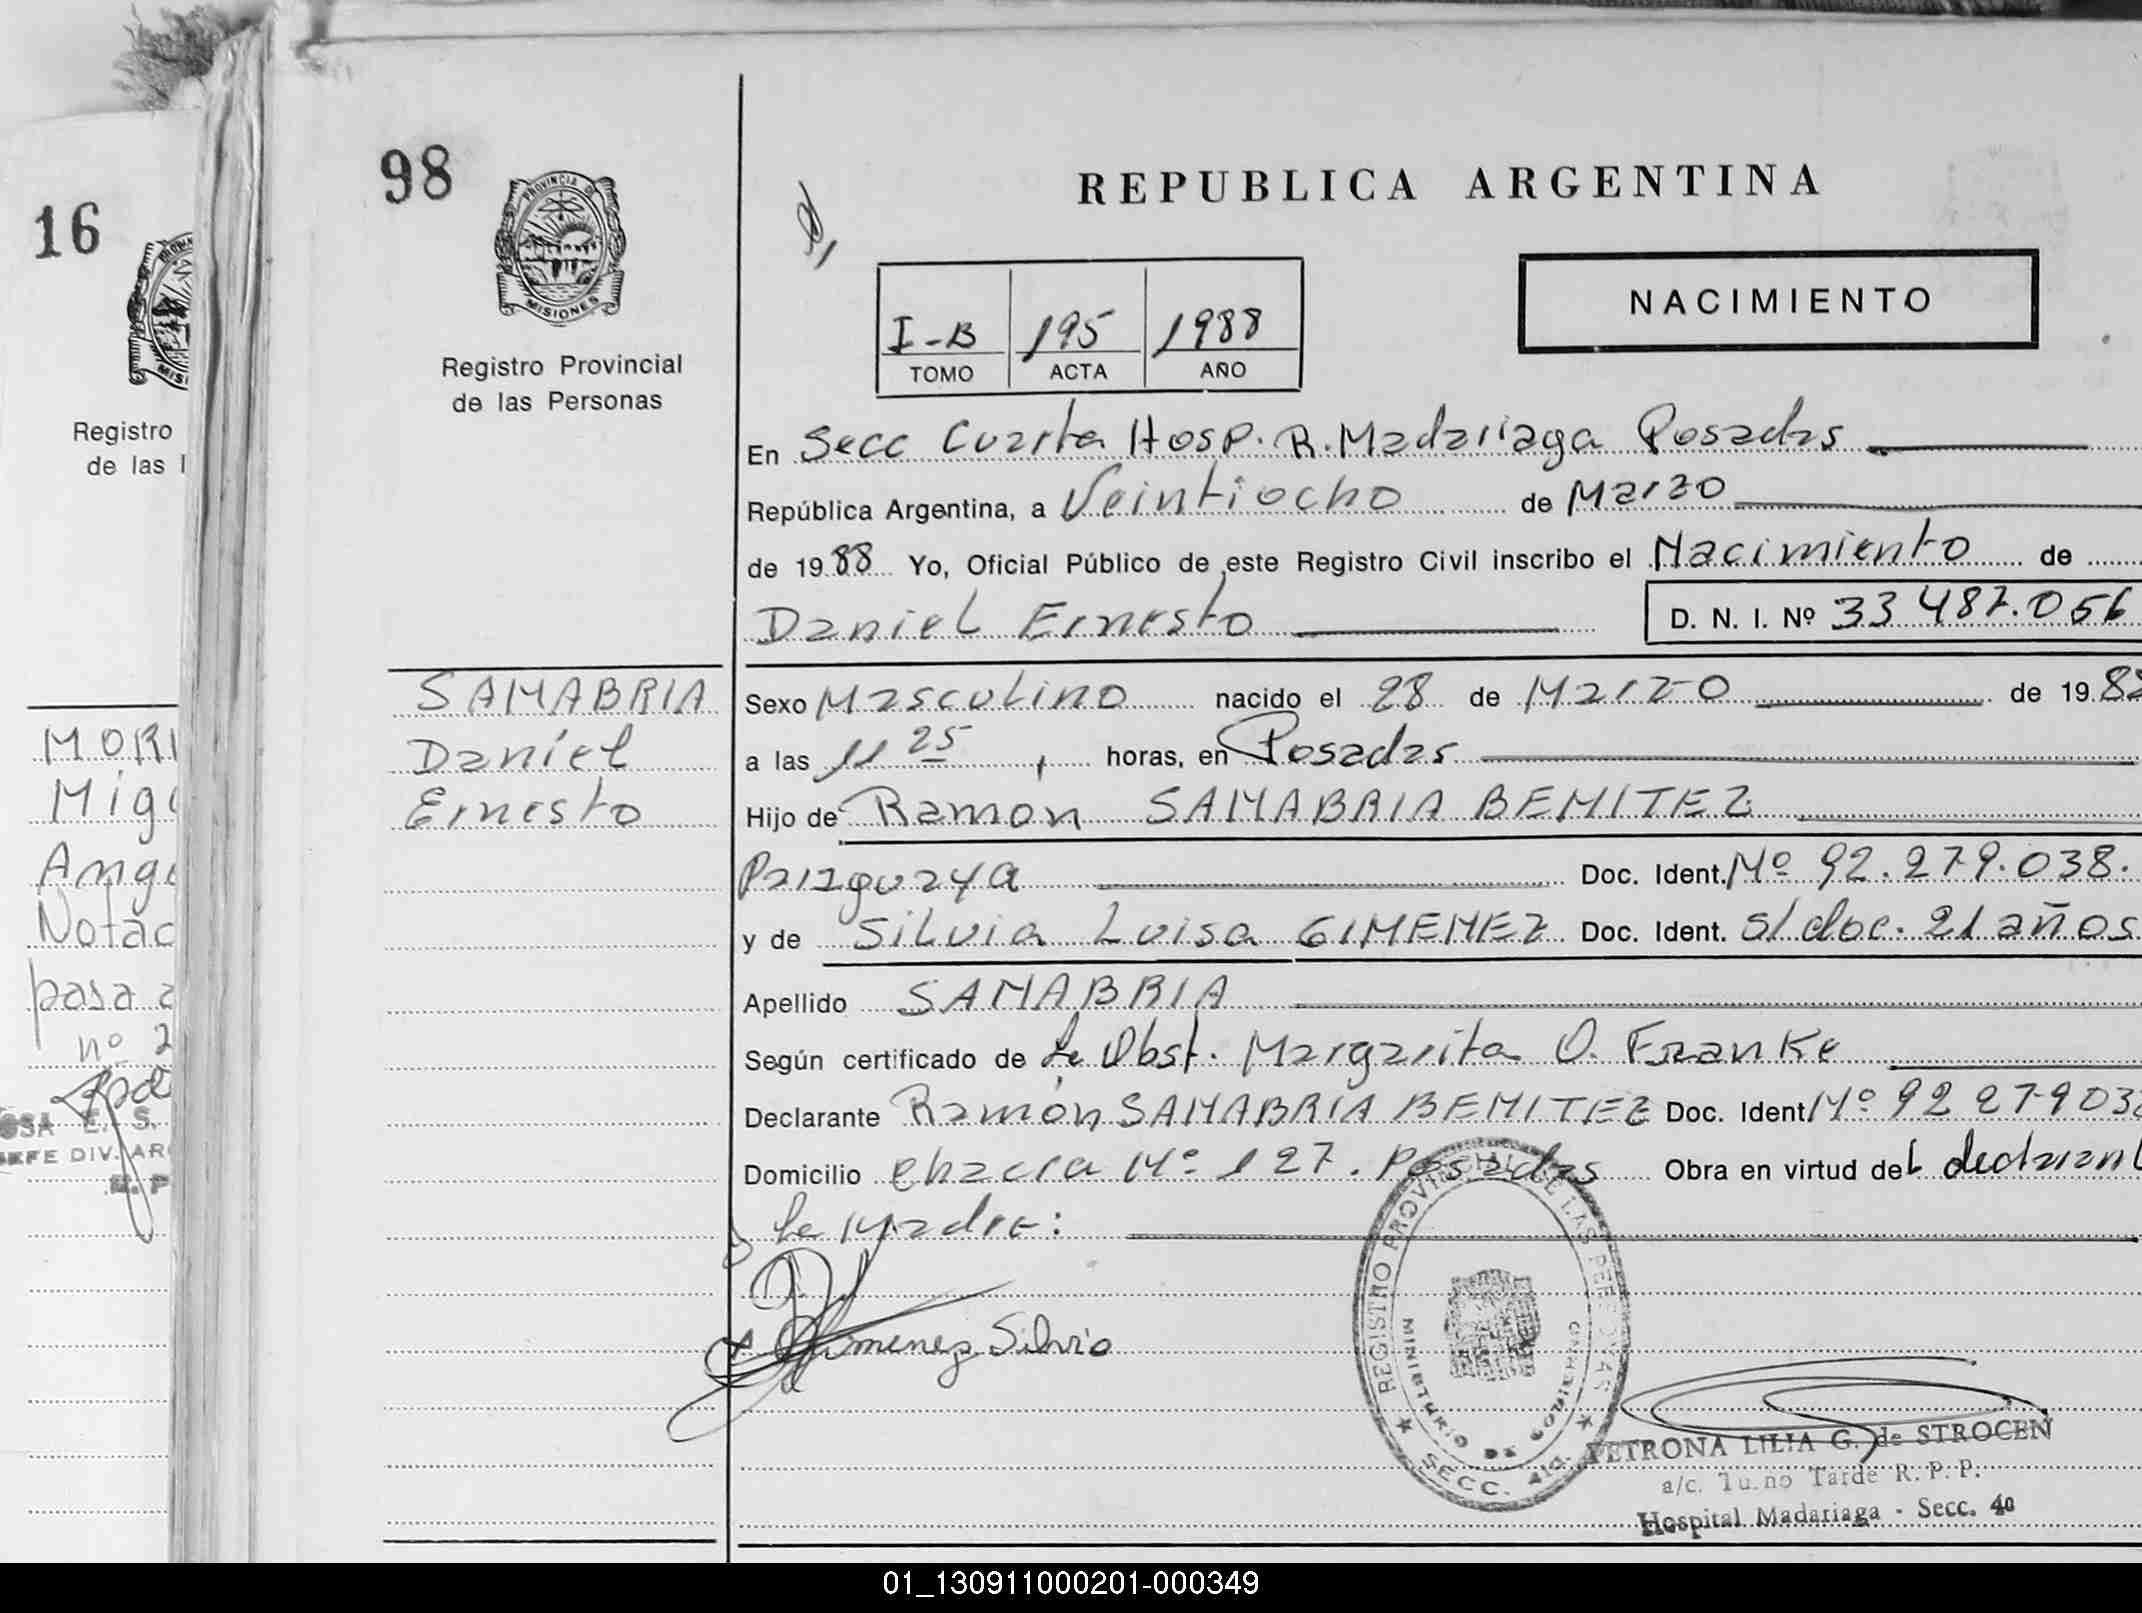 16
Registro
de las
MORI
Mig
Ange
Notac
pasa a
nº 2
OSA E. S.
JEFE DIV. AR
98
PROVINCIA DE
MISIONES
Registro Provincial
de las Personas
SANABRIA
Daniel
Ernesto
REPUBLICA ARGENTINA
NACIMIENTO
I-B 195 1988
TOMO ACTA AÑO
En Secc Cuarta Hosp. R. Madariaga Posadas
República Argentina, a Veintiocho de Marzo
de 1988 Yo, Oficial Público de este Registro Civil inscribo el Nacimiento de
Daniel Ernesto D. N. I. Nº 33 487.056
Sexo Masculino nacido el 28 de Marzo de 1988
a las 11 25 horas, en Posadas
Hijo de Ramón SANABRIA BENITEZ
Paraguaya Doc. Ident. Nº 92.279.038.
y de Silvia Luisa GIMENEZ Doc. Ident. s/doc. 21 años
Apellido SANABRIA
Según certificado de La Obst. Margarita O. Franke
Declarante Ramón SANABRIA BENITEZ Doc. Ident. Nº 92 279 038
Domicilio Chacra Nº 127. Posadas Obra en virtud del declarant
y la Madre:
Gimenez Silvio
REGISTRO PROVINCIAL DE LAS PERSONAS
MINISTERIO DE GOBIERNO
SECC. 4ta.
PETRONA LILIA G. de STROCEN
a/c. Turno Tarde R. P. P.
Hospital Madariaga - Secc. 4a
01_130911000201-000349